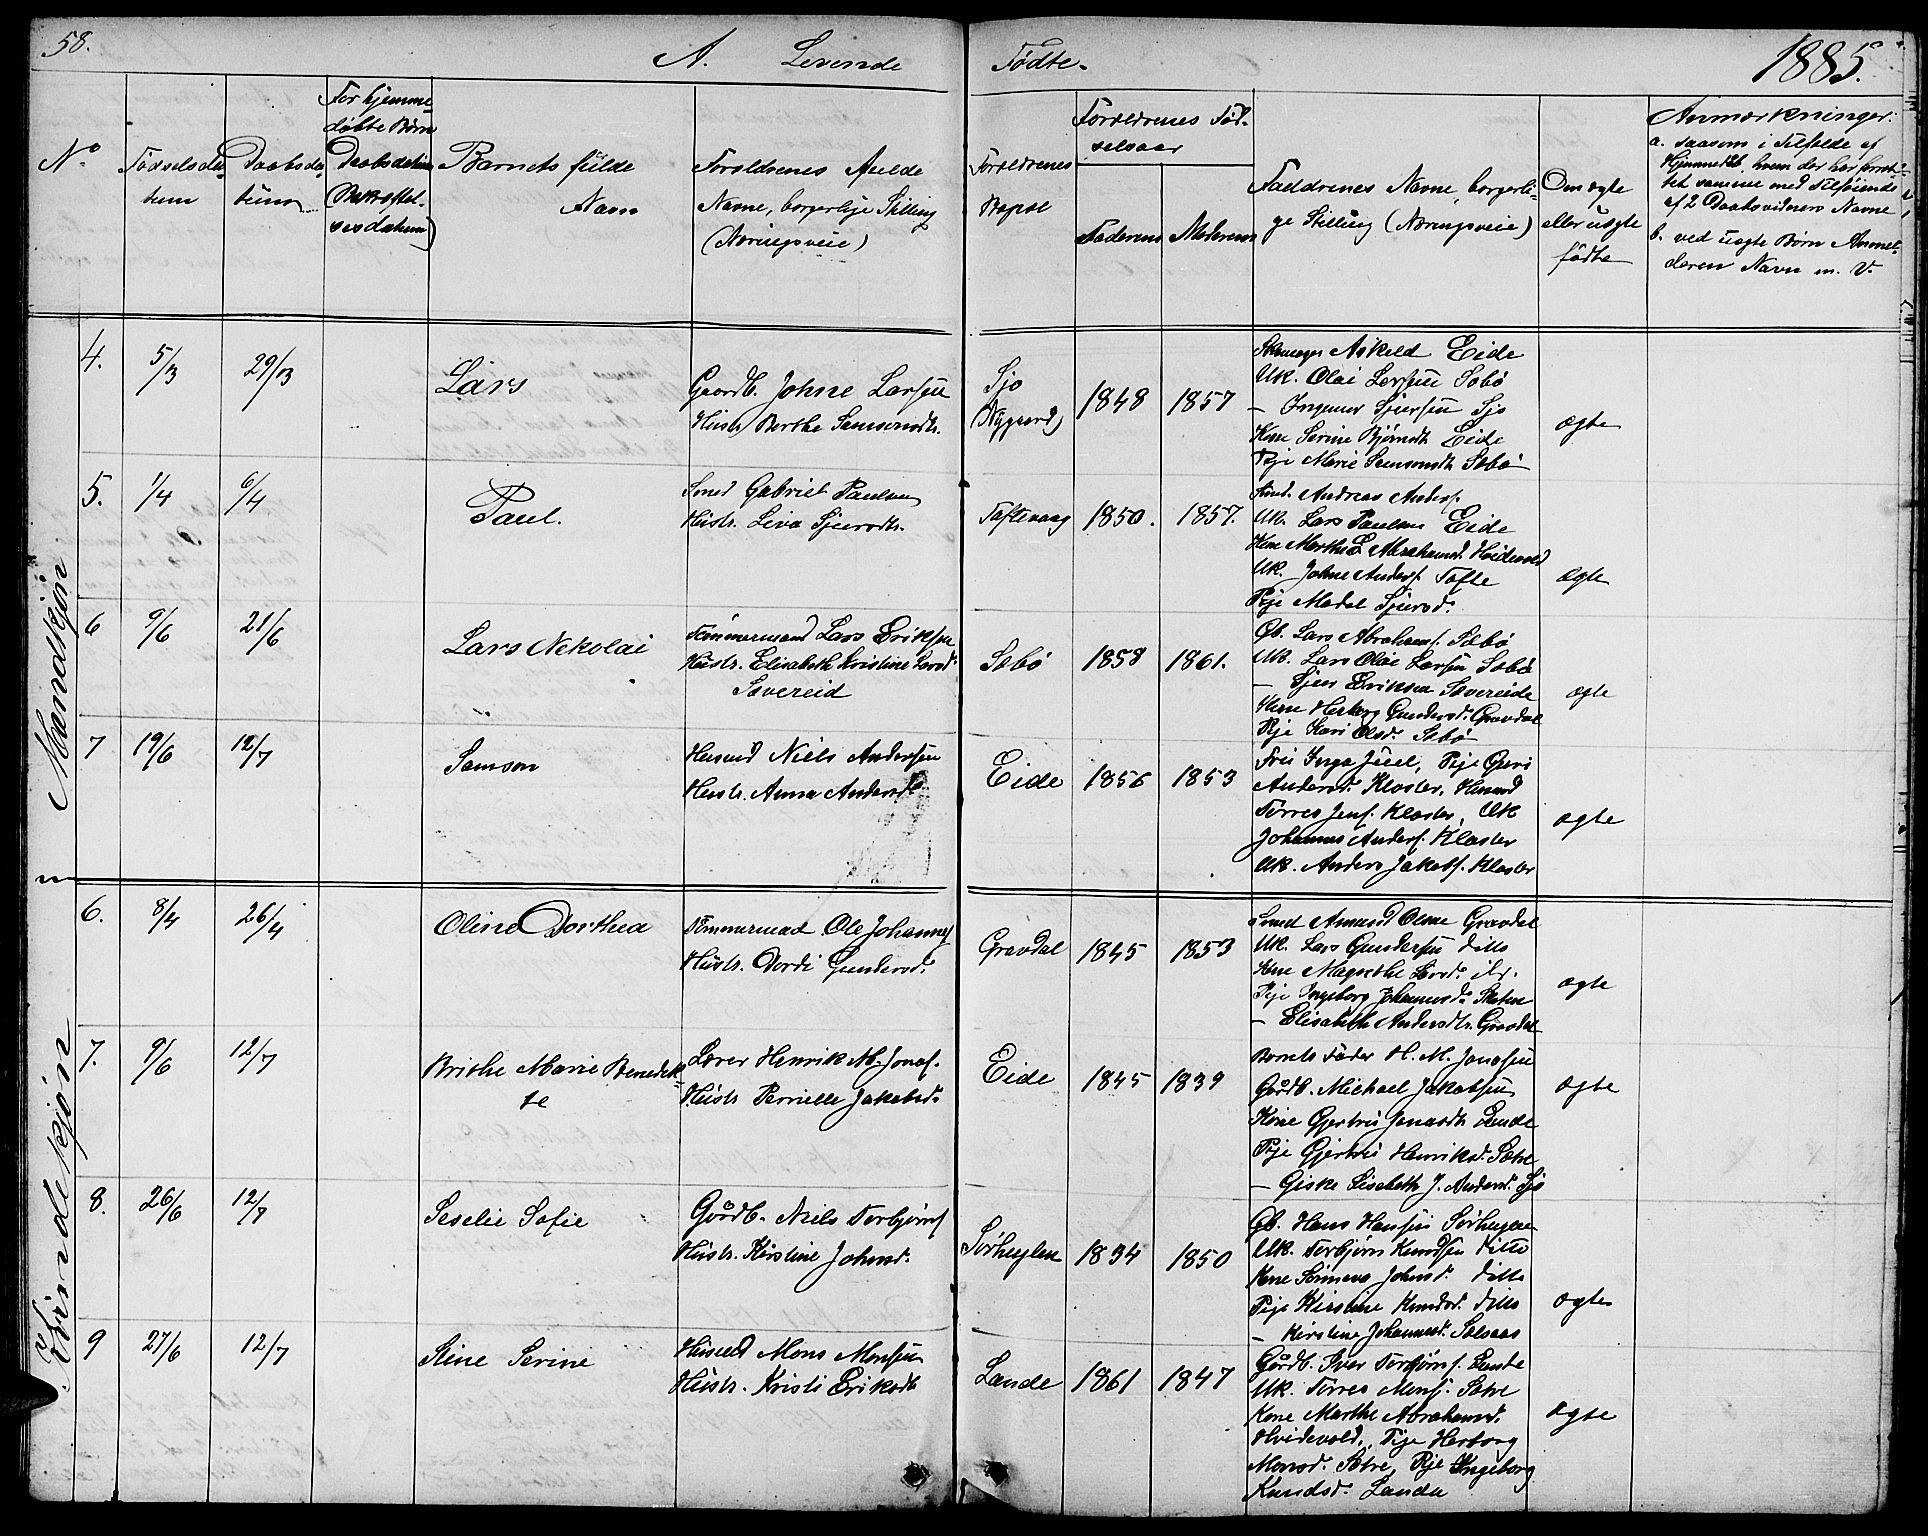 58.
A. Levende Födte.
1885.
No
Födselsda-
tum
Daabsda-
tum
For hjemme-
döbte Börn
Daabsdatum
(Bekræftel-
sesdatum)
Barnets fulde
Navn
Forældrenes fulde
Navne, borgerlige Stilling
(Næringsveie)
Forældrenes
Bopæl
Forældrenes Föd-
selsaar
Faderens
Moderens
Faddrenes Navne, borgerli-
ge Stilling (Næringsveie)
Om ægte
eller uægte
födte
Anmærkninger:
a. saasom i Tilfælde af
Hjemmedåb, hvem der har forret-
tet samme med Tilföiende
af 2 Daabsvidners Navne
b. ved uægte Börn Anmel-
derens Navn m. V.
Mandkjön
4. 5/3 29/3
Lars
Gaardb. Johne Larsen
Hustr. Berthe Samsonsdtr.
Sjo
(Nygaard)
1848 1857
Askeld Eide
Uk. Olai Larsen Sæbö
– Ingemer Sjursen Sjo
Kone Serine Björnsdt. Eide
Pige Marie Samsonsdt. Sæbö
ægte
5. 1/4 6/4
Paul.
Gabriel Paulsen
Hustr. Liva Sjursdtr.
Toftevaag 1850. 1857.
Andreas Anders.
Uk. Lars Paulsen Eide
Kone Marthe Abrahamsd. Hvidevold
Uk. Johne Anders. Tofte
Pige Madel Sjursd.
ægte
6 9/6 21/6
Lars Nekolai
Tömmermand Lars Eriksen
Hustr. Elisabeth Kristine Larsd.
Sævereid
Sæbö 1858 1861.
Gb. Lars Abrahams. Sæbö
Uk. Lars Olai Larsen Sæbö
– Sjur Eriksen Sævereide
Kone Herborg Gundersd. Gravdal
Pige Kari Olsd. Sæbö
ægte
7 19/6 12/7
Samson
Husmd Niels Andersen
Hustr. Anna Andersd.
Eide 1856 1853
Frü Inga Juel, Pige Guri
Andersd. Kloster, Husmd
Torres Jens. Kloster, Uk
Johannes Anders. Kloster
Uk. Anders Jakobs. Kloster
ægte
Kvindekjön
6. 8/4 26/4
Oline Dorthea
Tömmermand Ole Johannes.
Hustr. Dordi Gundersd.
Gravdal 1845 1853
Amund Olsen Gravdal
Uk. Lars Gundersen ditto
Kone Magrethe Larsd. do.
Pige Ingeborg Johannesd.
– Elisabeth Andersdtr. Gravdal
ægte
7. 9/6 12/7
Brithe Marie Benedik-
te
Lærer Henrik M. Jonas.
Hustr. Pernille Jakobsd.
Eide 1845 1839
Barnets Fader H. M. Jonasen
Gårdb. Michael Jakobsen
Kone Gjertrü Jonasdtr. Lunde
Pige Gjertrü Henriksd. Sætre
– Giske Lisabeth J. Andersd. Sjo
ægte
8. 26/6 12/7
Seselie Sofie
Gårdb. Niels Torbjörns.
Hustr. Kirstine Johnsd.
Sörhuglen 1834 1850
Gb. Hans Hansen Sörhuglen
Uk. Torbjörn Knudsen ditto
Kone Sönneva Johnsd. ditto
Pige Kirstine Knudsd. ditto
– Kirstine Johannesd.
ægte
9 27/6 12/7
Stine Serine
Husmd Mons Monsen
Hustr. Kristi Eriksdtr.
Lande 1861 1847
Gårdb. Iver Torbjörns. Lunde
Uk. Torres Mons. Sætre
Kone Marthe Abrahamsd.
Hvidevold, Pige Herborg
Monsd. Sætre, Pige Ingeborg
Knudsd. Landa
ægte